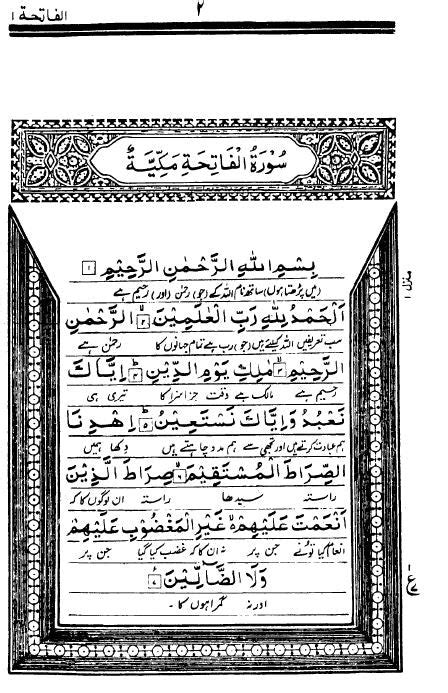 ٢
الفاتحة ١
سُوْرَةُ الْفَاتِحَةِ مَكِّيَّةٌ
بِسْمِ اللّٰهِ الرَّحْمٰنِ الرَّحِيْمِ ۱
(میں پڑھتا ہوں) ساتھ نام اللہ کے (جو) رحمٰن (اور) رحیم ہے
اَلْحَمْدُ لِلّٰهِ رَبِّ الْعٰلَمِيْنَ ۲ الرَّحْمٰنِ
سب تعریفیں اللہ کیلئے ہیں (جو) رب ہے تمام جہانوں کا رحمٰن ہے
الرَّحِيْمِ ۳ مٰلِكِ يَوْمِ الدِّيْنِ اِيَّاكَ
رحیم ہے مالک ہے وقت جزا سزا کا تیری ہی
نَعْبُدُ وَاِيَّاكَ نَسْتَعِيْنُ ۵ اِهْدِنَا
ہم عبادت کرتے ہیں اور تجھی سے ہم مدد چاہتے ہیں دکھا ہمیں
الصِّرَاطَ الْمُسْتَقِيْمَ ۶ صِرَاطَ الَّذِيْنَ
راستہ سیدھا راستہ ان لوگوں کا کہ
اَنْعَمْتَ عَلَيْهِمْ غَيْرِ الْمَغْضُوْبِ عَلَيْهِمْ
انعام کیا تُونے جن پر نہ ان کا کہ غضب کیا گیا جن پر
وَلَا الضَّآلِّيْنَ
اور نہ گمراہوں کا -
منزل ١
ع